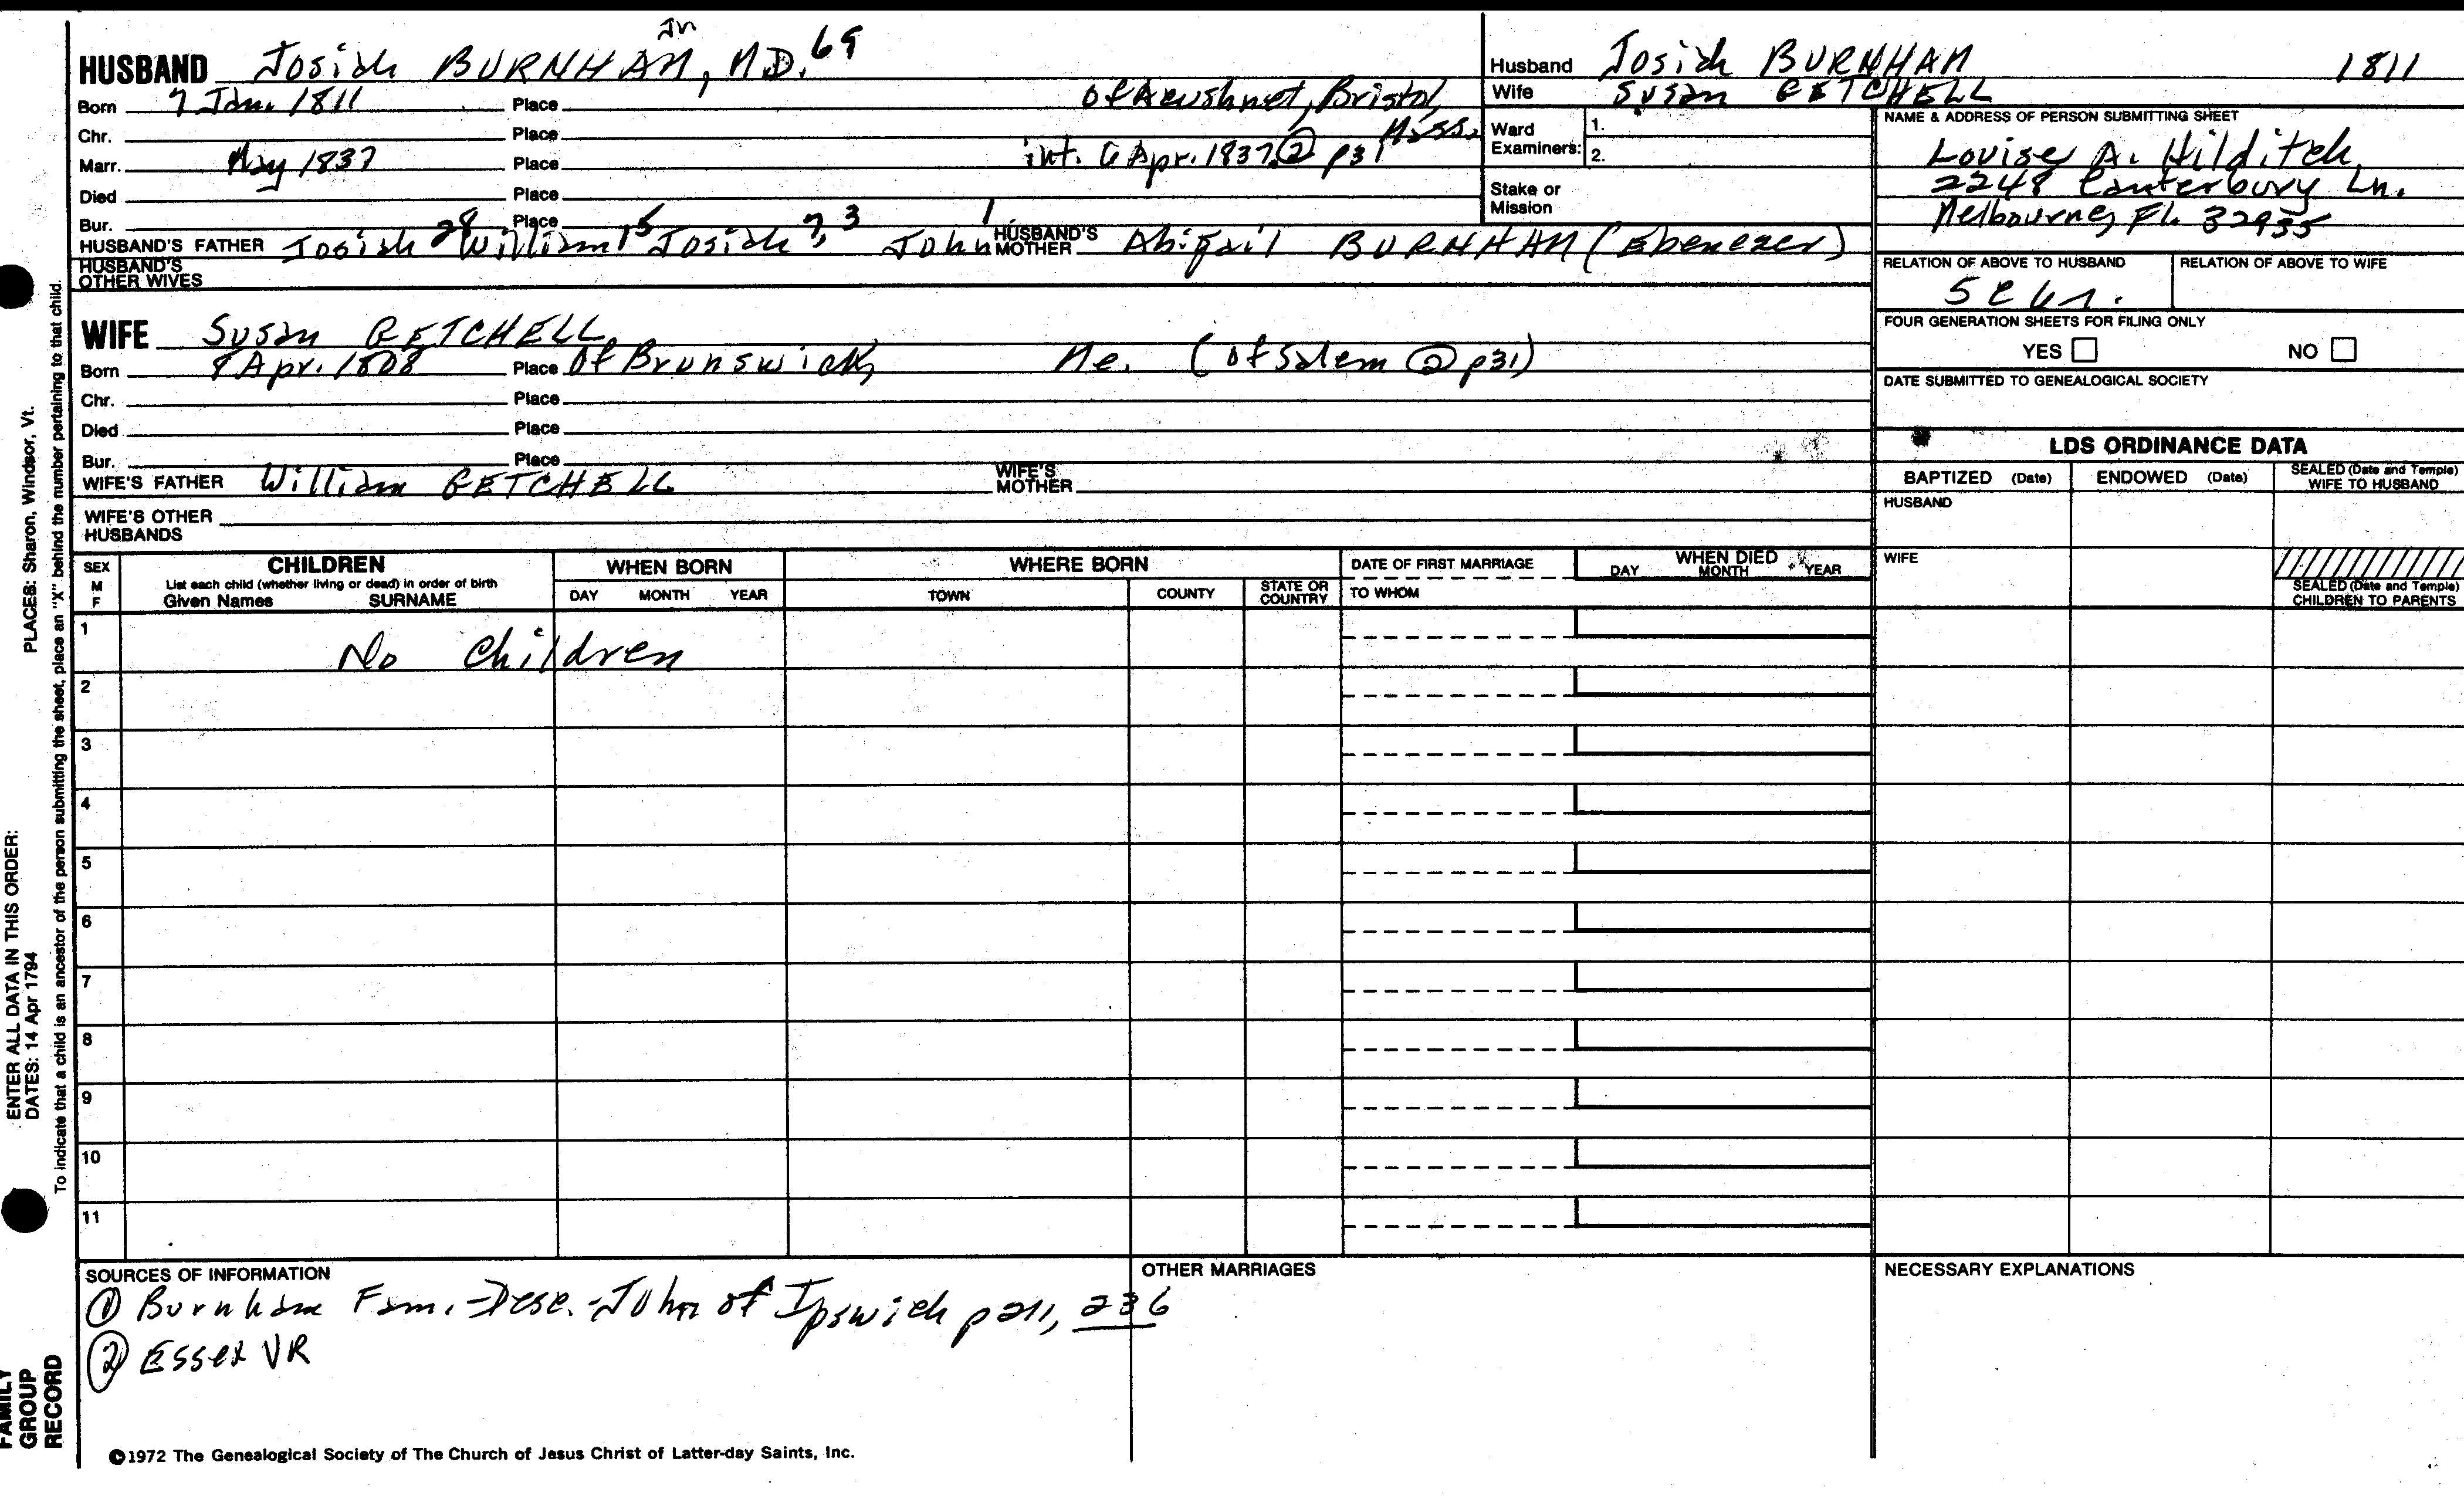 Jr
HUSBAND Josiah BURNHAM, M.D. 69
Born 7 Jan. 1811 Place of Acushnet, Bristol,
Chr. Place Mass.
Marr. May 1837 Place int. 6 Apr. 1837 ② p31
Died Place
Bur. Place
HUSBAND'S FATHER Josiah 28 William 15 Josiah 7, 3 John 1 HUSBAND'S MOTHER Abigail BURNHAM (Ebenezer)
HUSBAND'S OTHER WIVES
WIFE Susan GETCHELL
Born 8 Apr. 1808 Place of Brunswick, Me. (of Salem ② p31)
Chr. Place
Died Place
Bur. Place
WIFE'S FATHER William GETCHELL WIFE'S MOTHER
WIFE'S OTHER HUSBANDS
Husband Josiah BURNHAM 1811
Wife Susan GETCHELL
Ward Examiners: 1.
2.
Stake or Mission
NAME & ADDRESS OF PERSON SUBMITTING SHEET
Louise A. Hilditch
2248 Canterbury Ln.
Melbourne, Fl. 32935
RELATION OF ABOVE TO HUSBAND RELATION OF ABOVE TO WIFE
FOUR GENERATION SHEETS FOR FILING ONLY
YES NO
DATE SUBMITTED TO GENEALOGICAL SOCIETY
LDS ORDINANCE DATA
BAPTIZED (Date) ENDOWED (Date) SEALED (Date and Temple) WIFE TO HUSBAND
HUSBAND
WIFE
SEALED (Date and Temple) CHILDREN TO PARENTS
SEX M F
CHILDREN
List each child (whether living or dead) in order of birth
Given Names SURNAME
WHEN BORN
DAY MONTH YEAR
WHERE BORN
TOWN COUNTY STATE OR COUNTRY
DATE OF FIRST MARRIAGE
TO WHOM
WHEN DIED
DAY MONTH YEAR
1 No Children
2
3
4
5
6
7
8
9
10
11
SOURCES OF INFORMATION
① Burnham Fam. - Desc. - John of Ipswich p 211, 236
② Essex VR
OTHER MARRIAGES
NECESSARY EXPLANATIONS
©1972 The Genealogical Society of The Church of Jesus Christ of Latter-day Saints, Inc.
FAMILY GROUP RECORD
ENTER ALL DATA IN THIS ORDER:
DATES: 14 Apr 1794
PLACES: Sharon, Windsor, Vt.
To indicate that a child is an ancestor of the person submitting the sheet, place an "X" behind the number pertaining to that child.